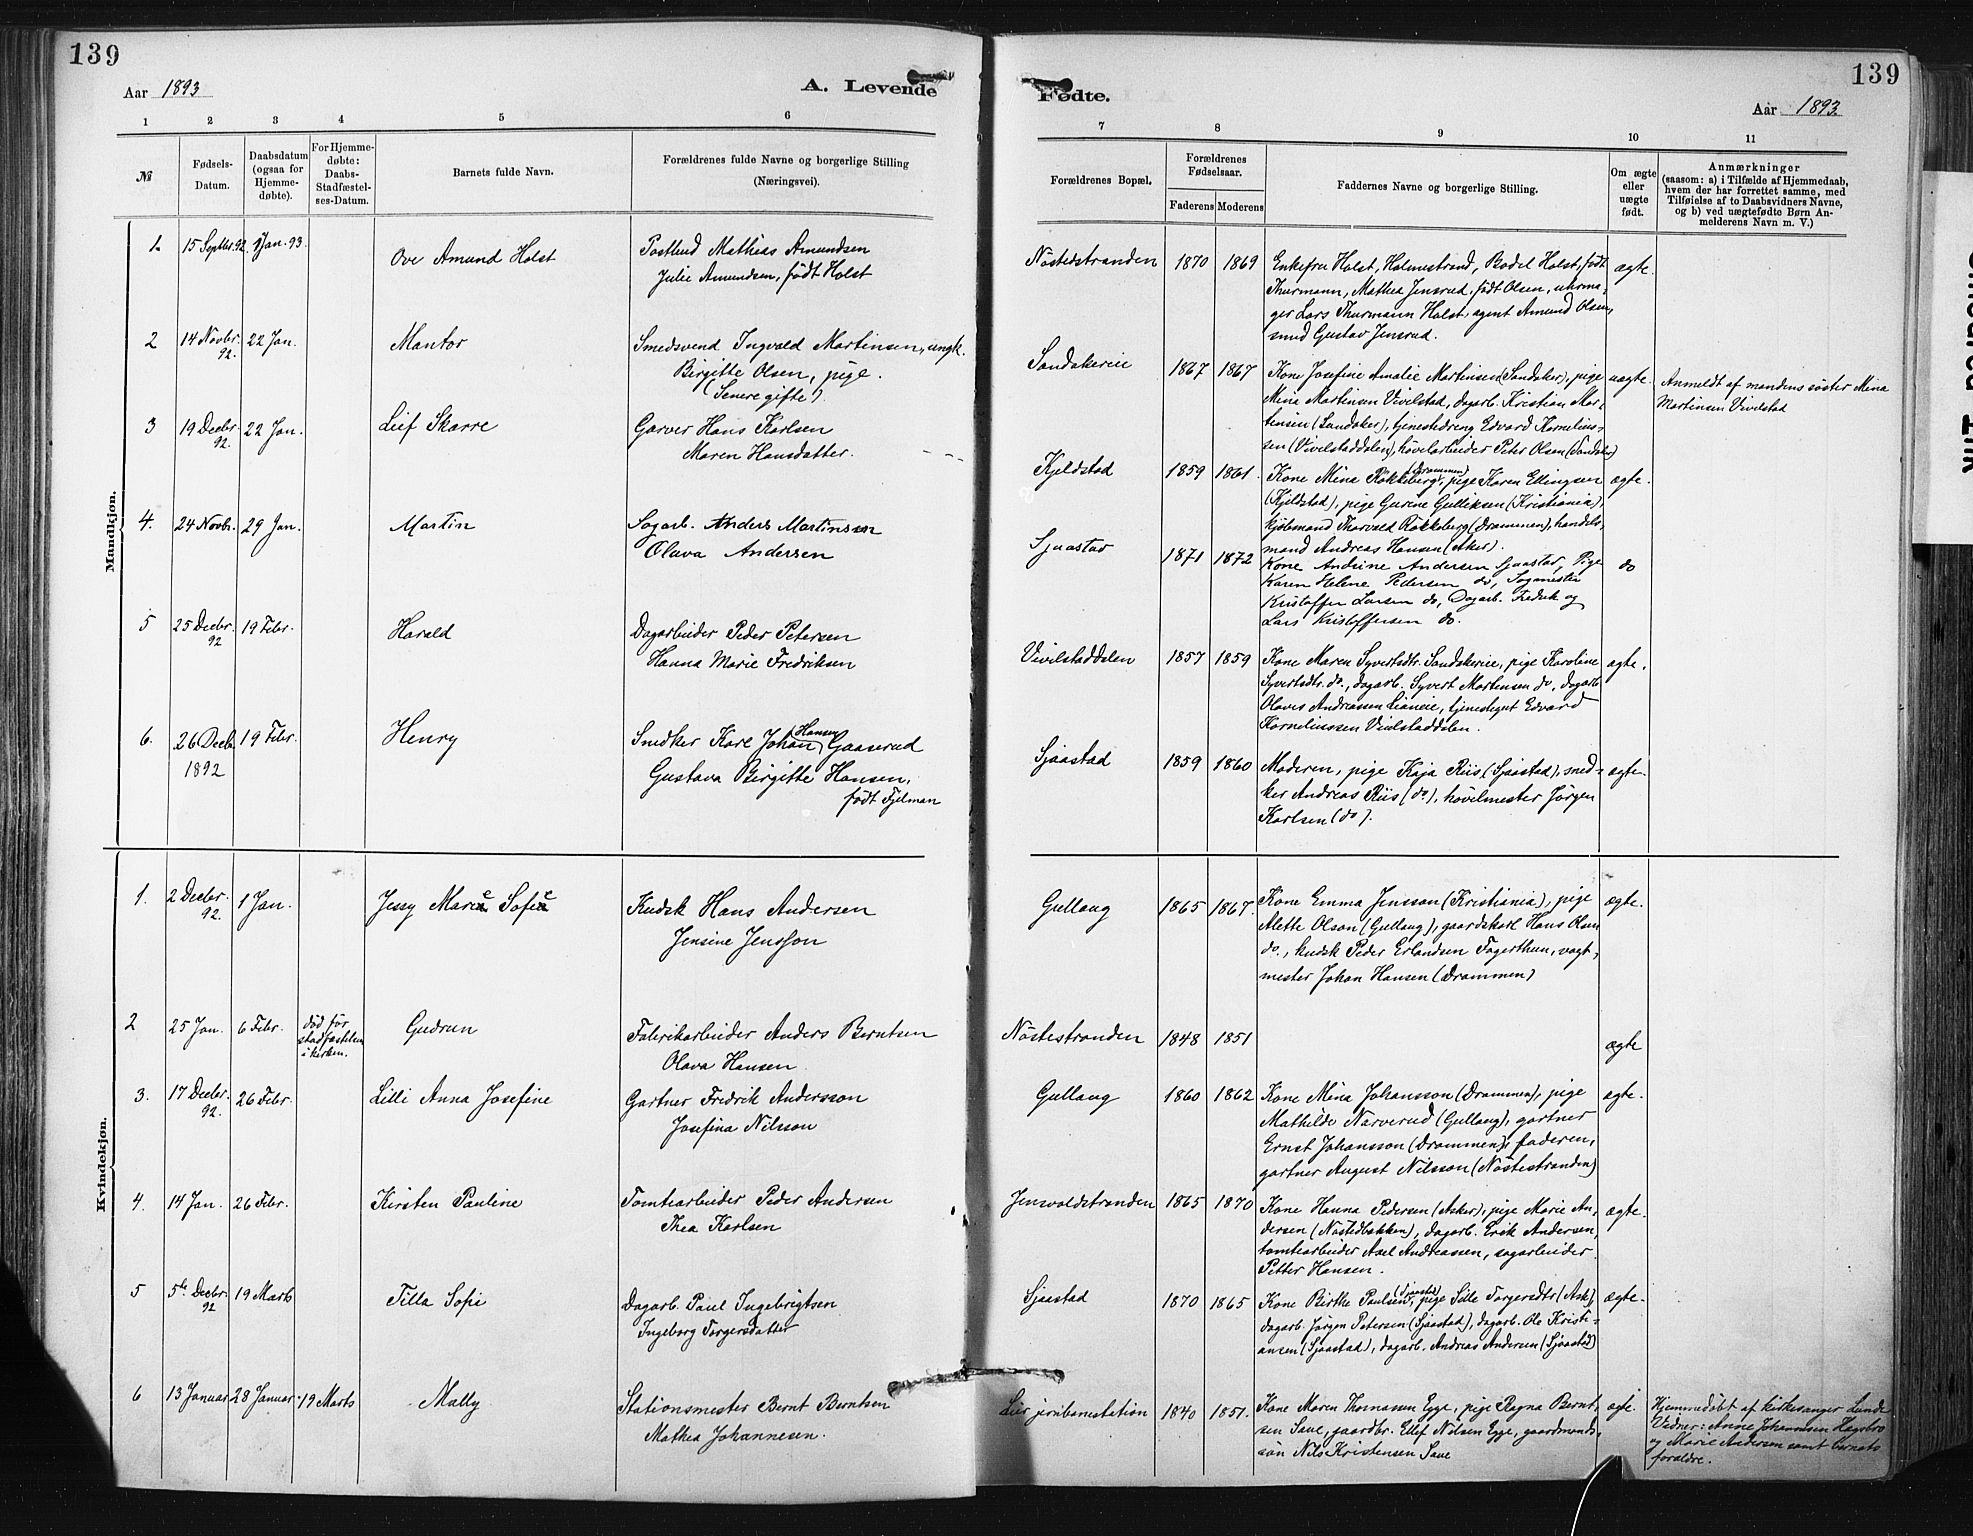 139
Aar 1893
A. Levende
1 2 3 4 5 6
№
Fødsels-Datum.
Daabsdatum (ogsaa for Hjemmedøbte).
For Hjemmedøbte: Daabs-Stadfæstelses-Datum.
Barnets fulde Navn.
Forældrenes fulde Navne og borgerlige Stilling (Næringsvei).
Mandkjøn.
1. 15 Septbr. 92. 1 Jan. 93. Ove Amund Holst Postbud Mathias Amundsen
Julie Amundsen, født Holst
2 14 Novbr. 92. 22 Jan. Mantor Smedsvend Ingvald Martinsen, ungk.
Birgitte Olsen, pige.
(Senere gifte).
3 19 Decbr. 92. 22 Jan. Leif Skarre Garver Hans Karlsen
Maren Hansdatter.
4. 24 Novbr. 29 Jan. Martin Sagarb. Anders Martinssen
Olava Andersen
5 25 Decbr. 92 19 Febr. Harald Dagarbeider Peder Petersen
Hanna Marie Fredriksen
6. 26 Decb. 1892 19 Febr. Henry Snedker Karl Johan (Hansen) Gaaserud
Gustava Birgitte Hansen,
født Fjelman
Kvindekjøn.
1. 2 Decbr. 92. 1 Jan. Jessy Marie Sofie Kudsk Hans Andersen
Jensine Jensson
2 25 Jan. 6 Febr. død før stadfæstelsen i kirken. Gudrun Fabrikarbeider Anders Berntsen
Olava Hansen
3. 17 Decbr. 92. 26 Febr. Lilli Anna Josefine Gartner Fredrik Andersson
Josefina Nilsson
4. 14 Jan. 26 Febr. Kirsten Pauline Tomtearbeider Peder Andersen
Thea Karlsen
5 5te Decbr. 92 19 Marts Tilla Sofie Dagarb. Paul Ingebrigtsen
Ingeborg Torgersdatter
6 13 Januar 28 Januar 19 Marts Mally Stationsmester Bernt Berntsen
Mathea Johannesen.
139
Fødte.
Aar 1893.
7 8 9 10 11
Forældrenes Bopæl.
Forældrenes Fødselsaar.
Faderens Moderens
Faddernes Navne og borgerlige Stilling.
Om ægte eller uægte født.
Anmærkninger
(saasom: a) i Tilfælde af Hjemmedaab,
hvem der har forrettet samme, med
Tilføielse af to Daabsvidners Navne,
og b) ved uægtefødte Børn An-
melderens Navn m. V.)
Nøstedstranden 1870 1869 Enkefru Holst, Holmestrand, Bodil Holst, født ægte.
Thurmann, Mathea Jensrud, født Olsen, uhrma-
ger Lars Thurmann Holst, agent Amund Olsen,
smed Gustav Jensrud.
Sandakereie 1867 1867 Kone Josefine Amalie Martinsen (Sandaker), pige uægte. Anmeldt af mandens søster Mina
Mina Martinsen Vivelstad, dagarb. Kristian Mar- Martinsen Vivelstad
tinsen (Sandaker), tjenestedreng Edvard Kornelius-
sen (Vivelstaddalen), høvelarbeider Peter Olsen (Sandaker)
Kjeldstad 1859 1861. Kone Mina Røkkeberg (Drammen), pige Karen Ellingsen ægte.
(Kjeldstad), pige Gurine Gulliksen (Kristiania),
kjøbmand Thorvald Røkkeberg (Drammen), handels-
mand Andreas Hansen (Asker).
Sjaastad 1871 1872 Kone Andrine Andersen Sjaastad, Pige do
Karen Helene Pedersen do, Sagmester
Kristoffer Larsen do, Dagarb. Fredrik og
Lars Kristoffersen do.
Vivelstaddalen 1857 1859 Kone Maren Syvertsdtr. Sandakereie, pige Karoline ægte.
Syvertsdtr. do., dagarb. Syvert Mortensen do, dagarb.
Olaves Andreassen Lianeie, tjenestegut Edvard
Korneliussen Vivelstaddalen.
Sjaastad 1859 1860 Moderen, pige Kaja Riis (Sjaastad), sned- ægte.
ker Andreas Riis (do), høvelmester Jørgen
Karlsen (do).
Gullaug 1865 1867. Kone Emma Jensson (Kristiania), pige ægte.
Alette Olson (Gullaug), gaardskarl Hans Olsen
do., kudsk Peder Erlandsen Fagerthun, vagt-
mester Johan Hansen (Drammen)
Nøstestranden 1848 1851 ægte
Gullaug 1860 1862 Kone Mina Johansson (Drammen), pige ægte.
Mathilde Narverud (Gullaug), gartner
Ernst Johansson (Drammen), faderen,
gartner August Nilsson (Nøstestranden)
Jensvoldstranden 1865 1870 Kone Hanna Pedersen (Asker), pige Marie An- ægte.
dersen (Nøstedbakken), dagarb. Erik Andersen,
tomtearbeider Axel Andreassen, sagarbeider
Petter Hansen.
Sjaastad 1870 1865 Kone Birthe Paulsen (Sjaastad), pige Sille Torgersdtr (Ask), ægte.
dagarb. Jørgen Petersen (Sjaastad), dagarb. Ole Kristi-
ansen (Sjaastad), dagarb. Andreas Andersen (Sjaastad)
Lier jernbanestation 1840 1851. Kone Maren Thomasen Egge, pige Ragna Bernt- ægte. Hjemmedøbt af kirkesanger Lunde
sen Save, gaardbr. Ellef Nilsen Egge, gaardmands- Vidner: Anne Johannesen Hagebro
søn Nils Kristensen Save og Marie Andersen samt barnets
forældre.